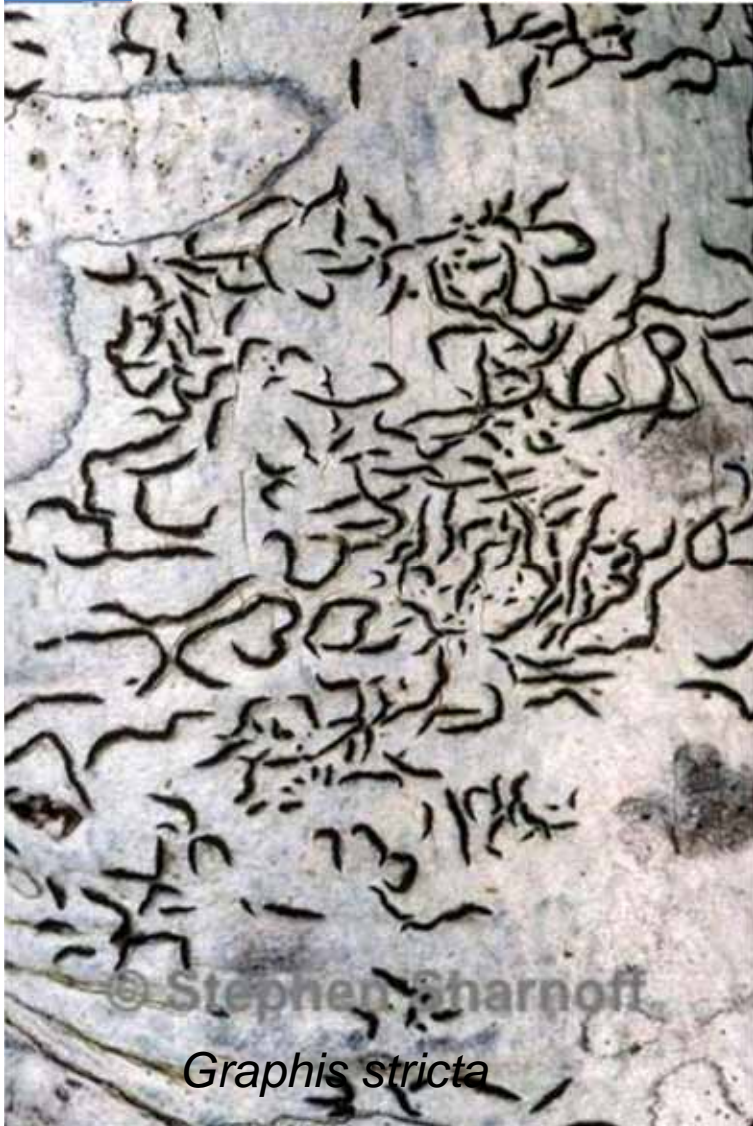 © Stephen Sharnoff
Graphis stricta